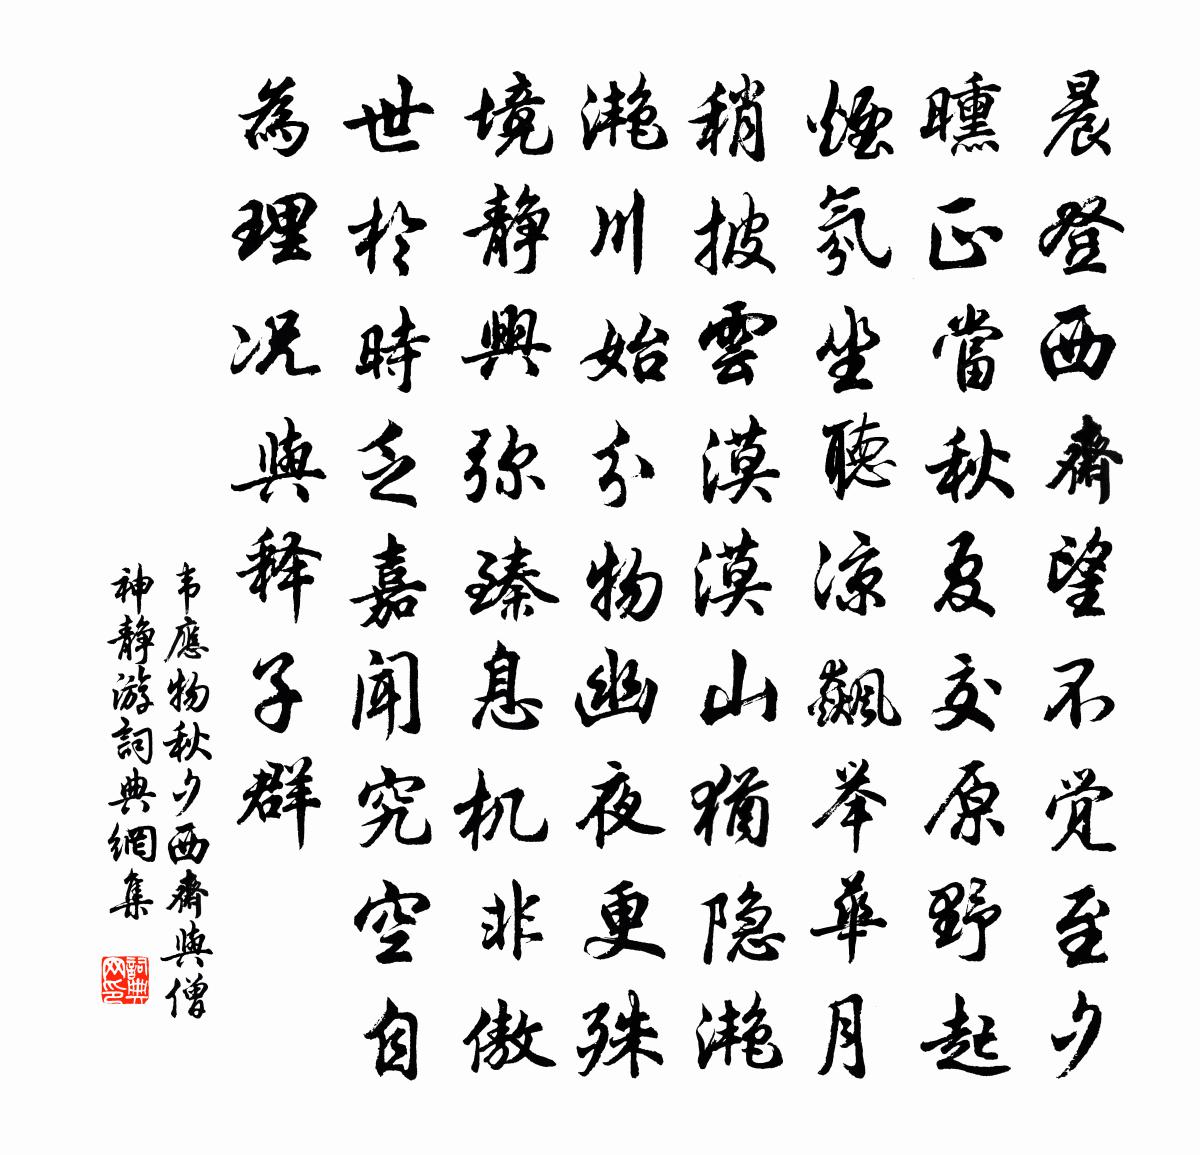 晨登西齋望不觉至夕
曛正當秋夏交原野起
煙氛坐聽凉飆举華月
稍披雲漠漠山猶隐滟
滟川始分物幽夜更殊
境静興弥臻息机非傲
世於時乏嘉闻究空自
為理况與释子群
韦應物秋夕西齋與僧
神静游詞典網集
詞典网印